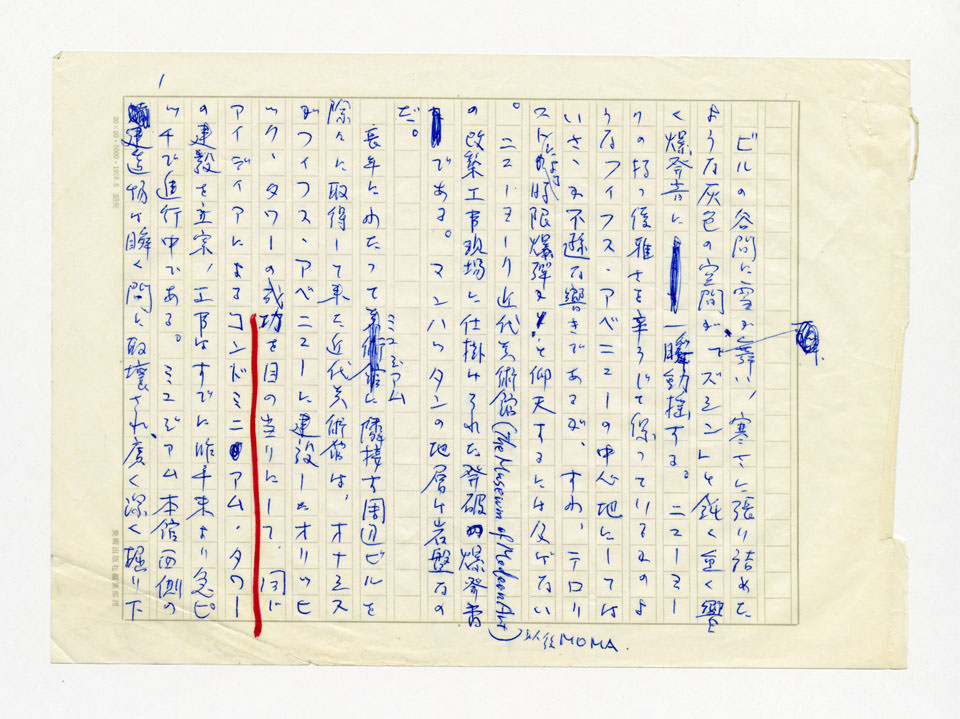 ビルの谷間に雪が舞い、寒さに張り詰めた
ような灰色の空間が、ズシントと鈍く重く響
く爆発音に一瞬動揺する。ニューヨー
クの持つ優雅さを辛うじて保っているかのよ
うなフィフス・アベニューの中心地にしては
いささか不遜な響きであるが、すわ、テロリ
ストによる時限爆弾か!と仰天するには及ばない
。ニューヨーク近代美術館(The Museum of Modern Art)以後MOMA.
の改築工事現場に仕掛けられた発破の爆発音
である。マンハッタンの地層は岩盤なの
だ。
長年にわたってミュジアムに隣接す周辺ビルを
除々に取得して来た近代美術館は、オナミス
がフィフス・アベニューに建設したオリンピ
ック・タワーの成功を目の当りにして、同じ
アイディアによるコンドミニアム・タワー
の建設を立案、工事はすでに昨年末より急ピ
ッチで進行中である。ミュジアム本館西側の
建造物は瞬く間に取壊され、広く深く掘り下
1
20×20=400
美術出版社編集部用